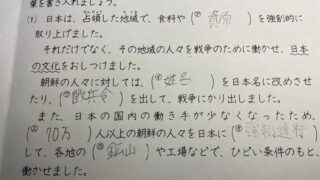 葉を書き入れましょう。
(1) 日本は、占領した地域で、食料や(② 資源 )を強制的に
取り上げました。
それだけでなく、その地域の人々を戦争のために働かせ、日本
の文化をおしつけました。
朝鮮の人々に対しては、(④ 姓名 )を日本名に改めさせ
たり、(⑤ 徴兵令 )を出して、戦争にかり出しました。
また、日本の国内の働き手が少なくなったため、
( 70万 )人以上の朝鮮の人々を日本に( 強制連行 )
して、各地の( 鉱山 )や工場などで、ひどい条件のもと、
働かせました。